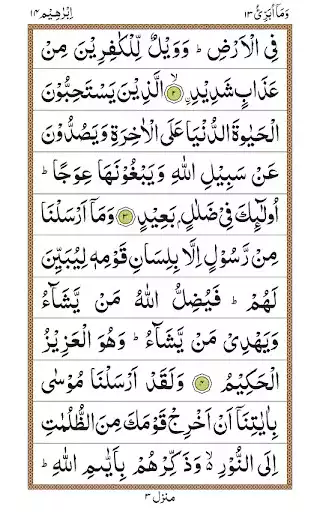 وَمَآ اُبَرِّئُ ١٣ اِبْرٰهِيْم ١٤
فِى الْاَرْضِ ؕ وَوَيْلٌ لِّلْكٰفِرِيْنَ مِنْ
عَذَابٍ شَدِيْدِ ۙ ﴿۲﴾ الَّذِيْنَ يَسْتَحِبُّوْنَ
الْحَيٰوةَ الدُّنْيَا عَلَى الْاٰخِرَةِ وَيَصُدُّوْنَ
عَنْ سَبِيْلِ اللّٰهِ وَيَبْغُوْنَهَا عِوَجًا ؕ
اُولٰٓئِكَ فِىْ ضَلٰلٍۢ بَعِيْدٍ ﴿۳﴾ وَمَآ اَرْسَلْنَا
مِنْ رَّسُوْلٍ اِلَّا بِلِسَانِ قَوْمِهٖ لِيُبَيِّنَ
لَهُمْ ؕ فَيُضِلُّ اللّٰهُ مَنْ يَّشَآءُ
وَيَهْدِىْ مَنْ يَّشَآءُ ؕ وَهُوَ الْعَزِيْزُ
الْحَكِيْمُ ﴿۴﴾ وَلَقَدْ اَرْسَلْنَا مُوْسٰى
بِاٰيٰتِنَآ اَنْ اَخْرِجْ قَوْمَكَ مِنَ الظُّلُمٰتِ
اِلَى النُّوْرِ ۙ وَذَكِّرْهُمْ بِاَيّٰىمِ اللّٰهِ ؕ
منزل ۳